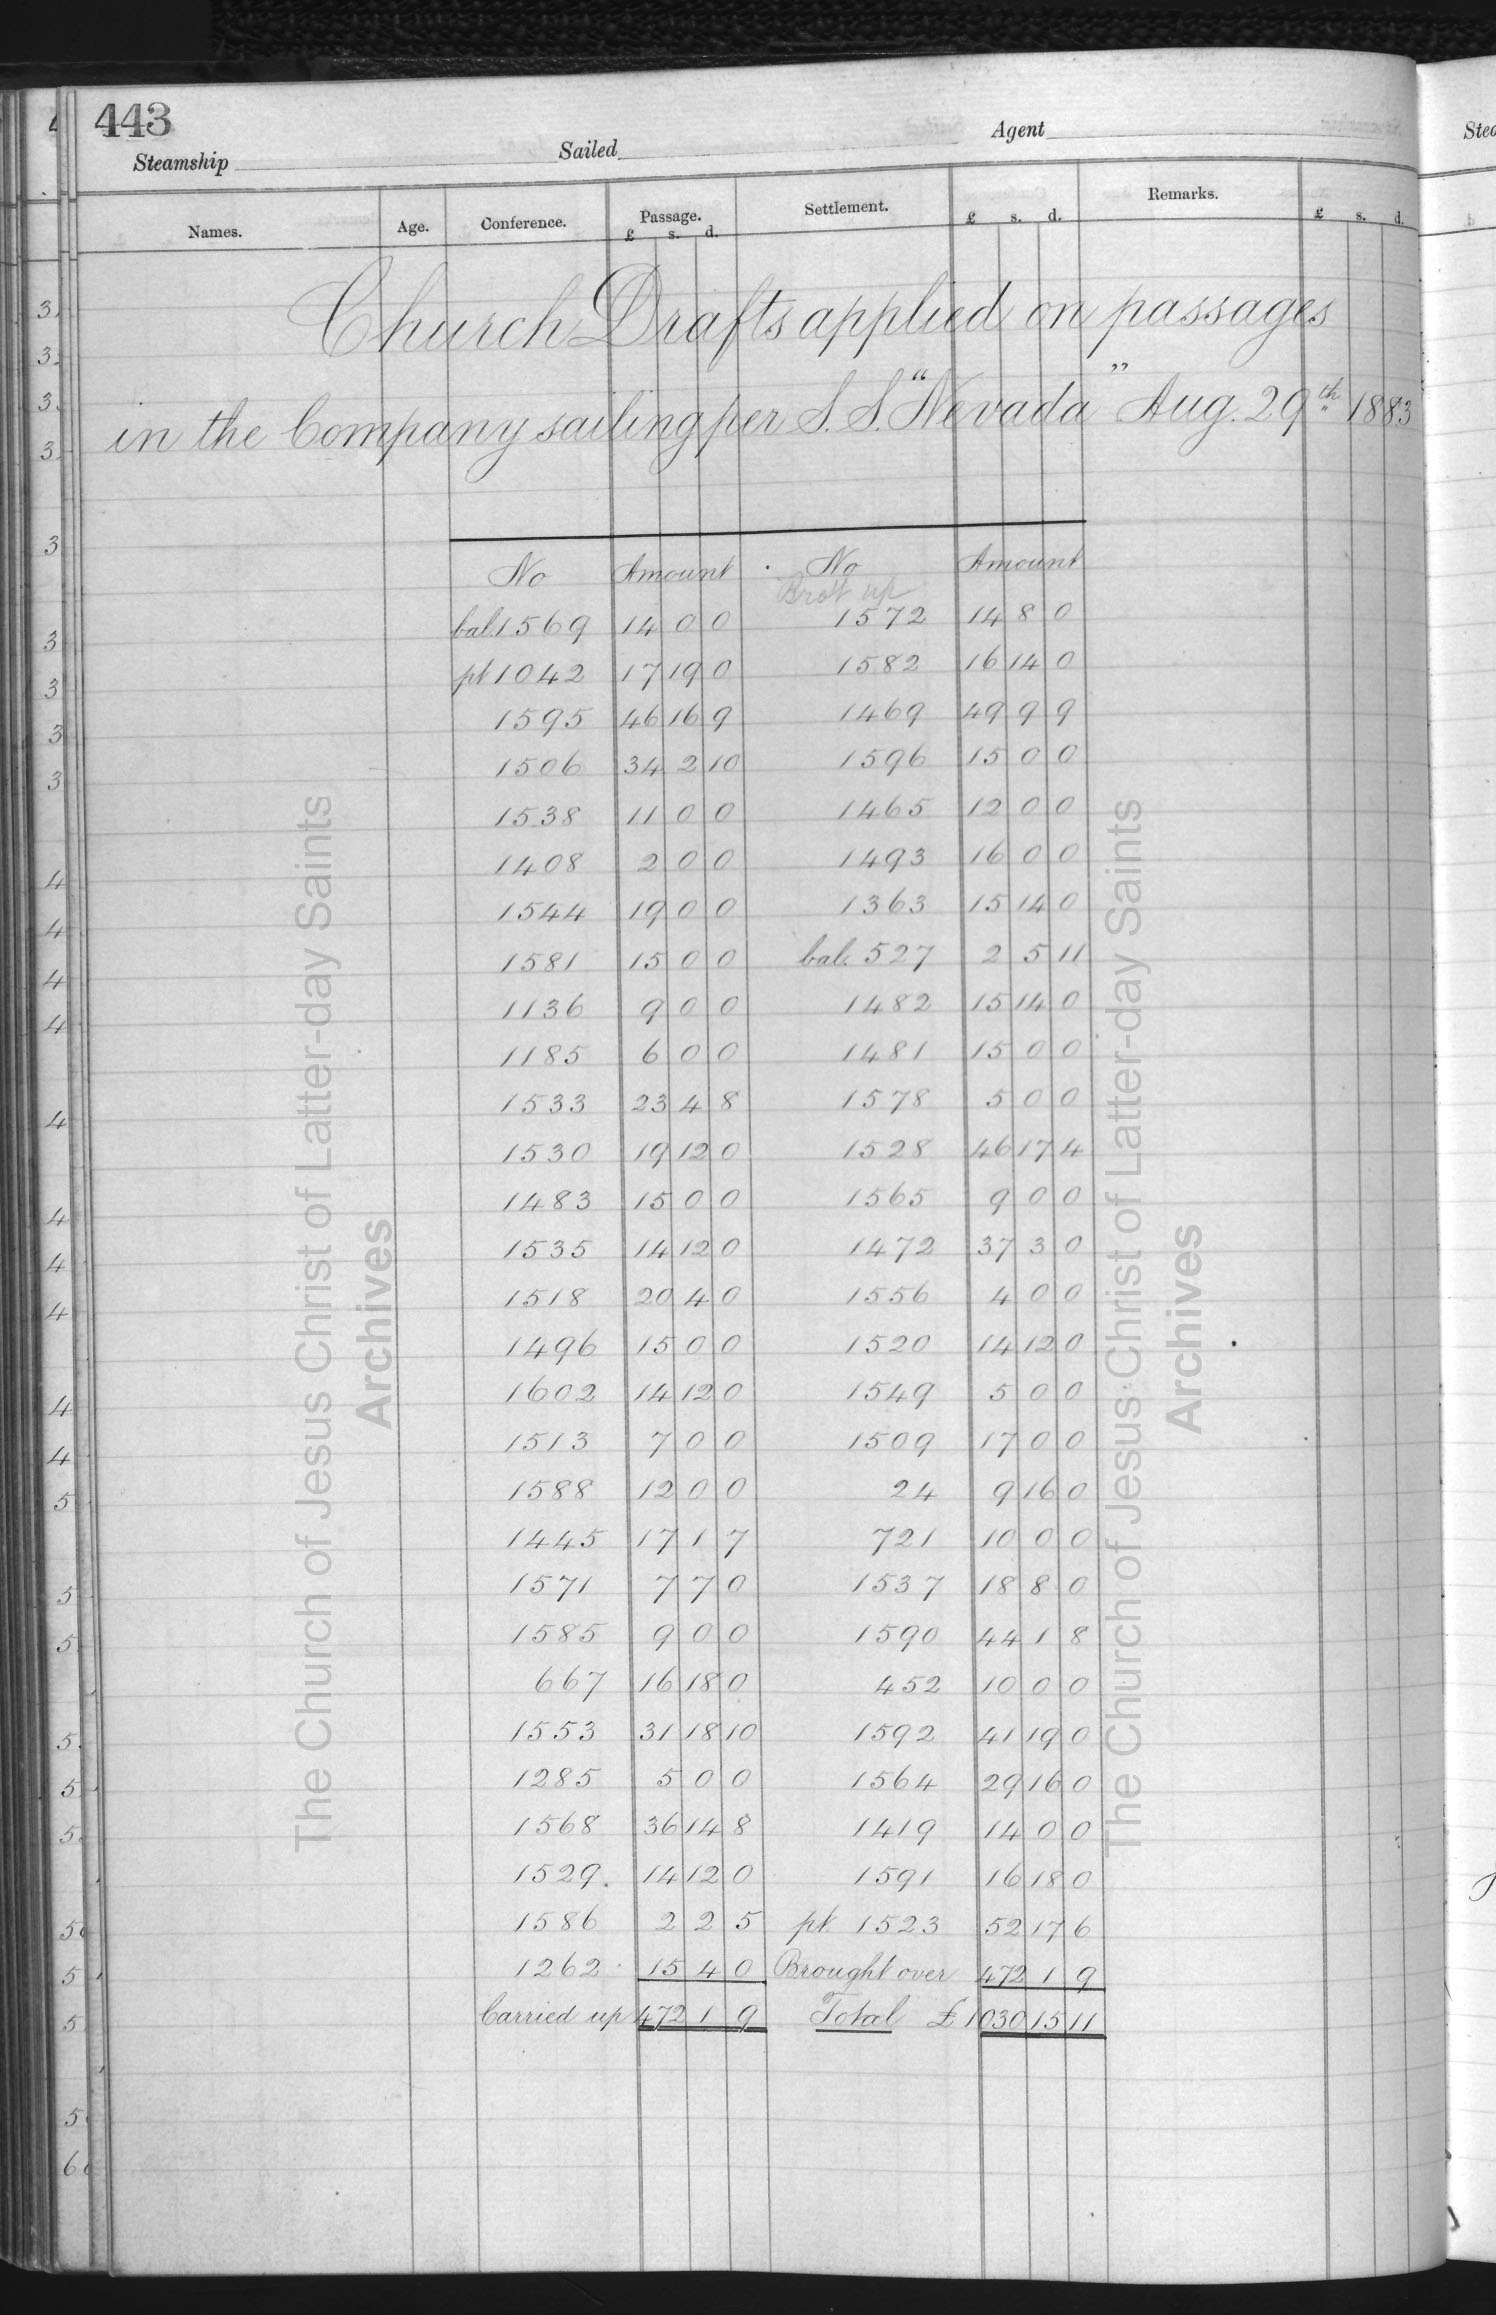 443
Steamship Sailed Agent
Names. Age. Conference. Passage. Settlement. £ s. d. Remarks. £ s. d.
£ s. d.
Church Drafts applied on passages
in the Company sailing per S. S. "Nevada" Aug. 29th 1883
No Amount No Amount
Brot up
bal. 1569 14 0 0 1572 14 8 0
pt 1042 17 19 0 1582 16 14 0
1595 46 16 9 1469 49 9 9
1506 34 2 10 1596 15 0 0
1538 11 0 0 1465 12 0 0
1408 2 0 0 1493 16 0 0
1544 19 0 0 1363 15 14 0
1581 15 0 0 bal. 527 2 5 11
1136 9 0 0 1482 15 14 0
1185 6 0 0 1481 15 0 0
1533 23 4 8 1578 5 0 0
1530 19 12 0 1528 46 17 4
1483 15 0 0 1565 9 0 0
1535 14 12 0 1472 37 3 0
1518 20 4 0 1556 4 0 0
1496 15 0 0 1520 14 12 0
1602 14 12 0 1549 5 0 0
1513 7 0 0 1509 17 0 0
1588 12 0 0 24 9 16 0
1445 17 1 7 721 10 0 0
1571 7 7 0 1537 18 8 0
1585 9 0 0 1590 44 1 8
667 16 18 0 452 10 0 0
1553 31 18 10 1592 41 19 0
1285 5 0 0 1564 29 16 0
1568 36 14 8 1419 14 0 0
1529. 14 12 0 1591 16 18 0
1586 2 2 5 pt 1523 52 17 6
1262 15 4 0 Brought over 472 1 9
Carried up 472 1 9 Total £1030 15 11
The Church of Jesus Christ of Latter-day Saints
Archives
The Church of Jesus Christ of Latter-day Saints
Archives